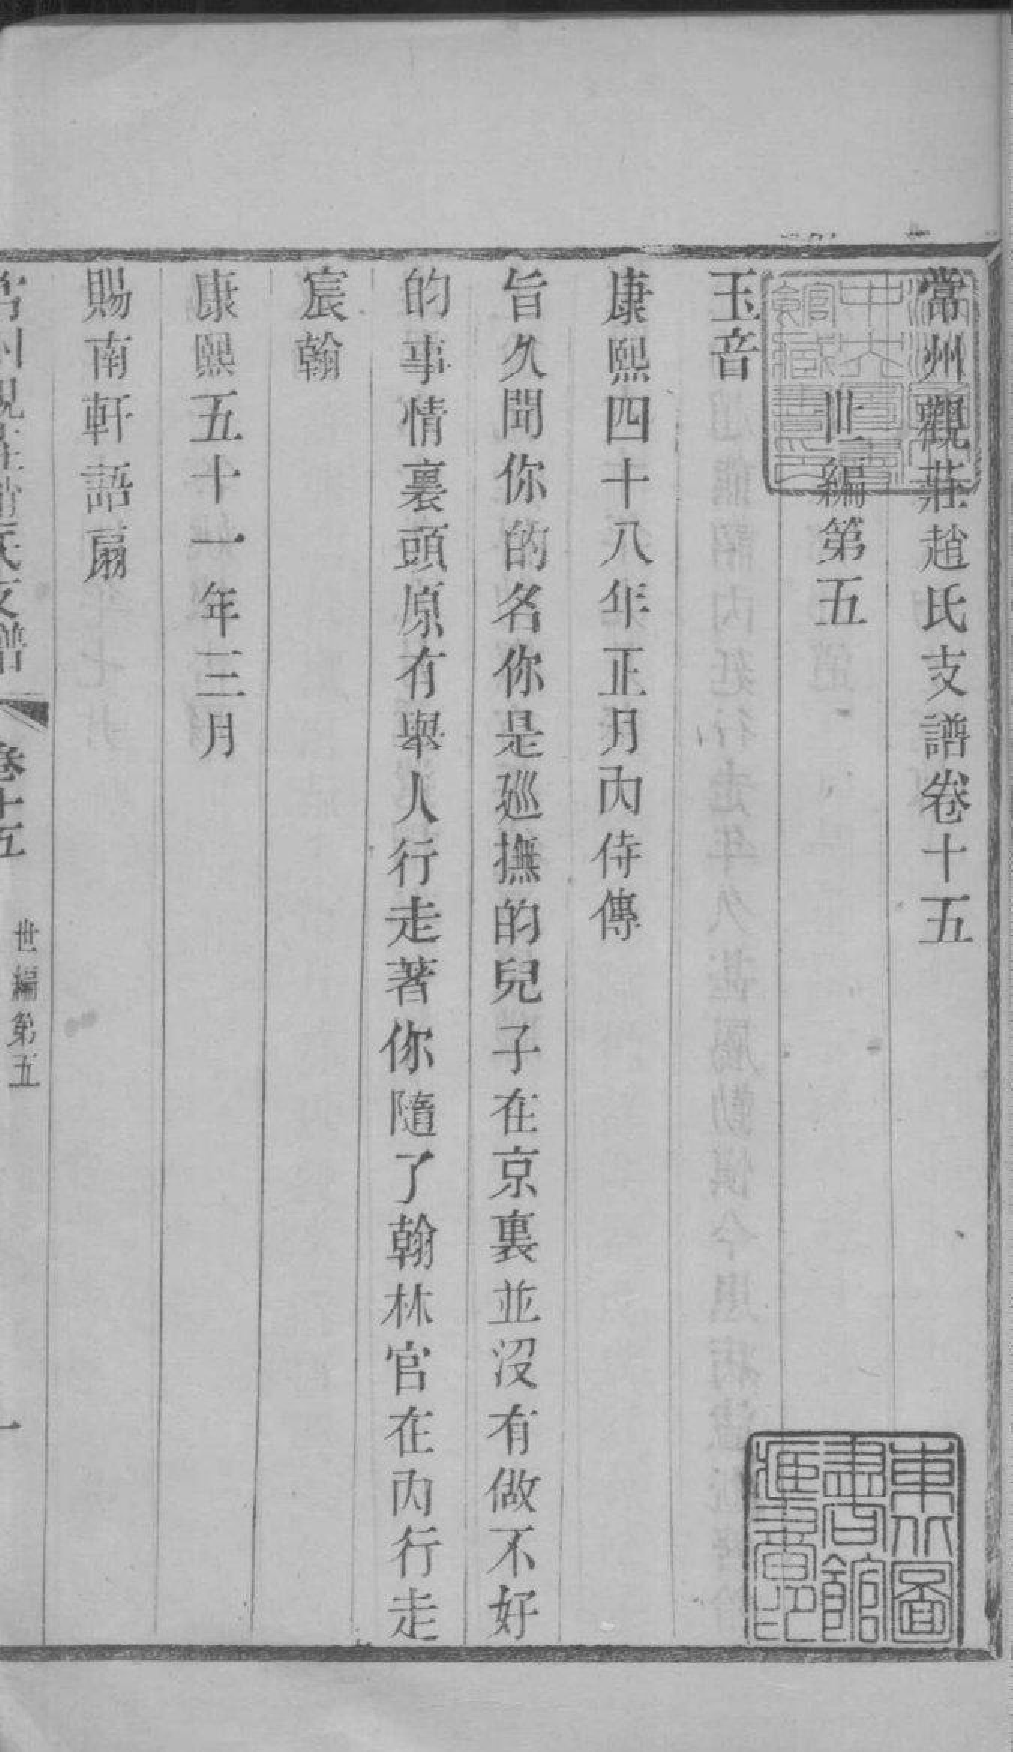 常州觀莊趙氏支譜卷十五
世編第五
玉音
康熙四十八年正月內侍傳
旨久聞你的名你是廵撫的兒子在京裏並沒有做不好
的事情裏頭原有舉人行走著你隨了翰林官在內行走
宸翰
康熙五十一年三月
賜南軒語扇
常州觀莊趙氏支譜
卷十五
世編第五
一
東北圖
書館